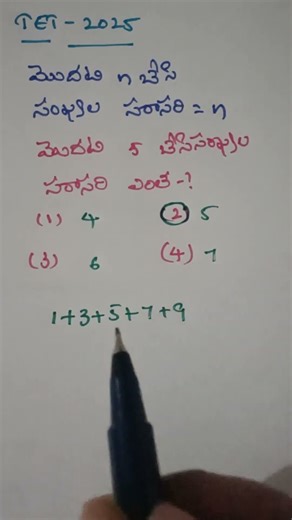 TET - 2025
మొదటి n బేసి
సంఖ్యల సరాసరి = n
మొదటి 5 బేసిసంఖ్యల
సరాసరి ఎంత - ?
(1) 4 (2) 5
(3) 6 (4) 7
1+3+5+7+9